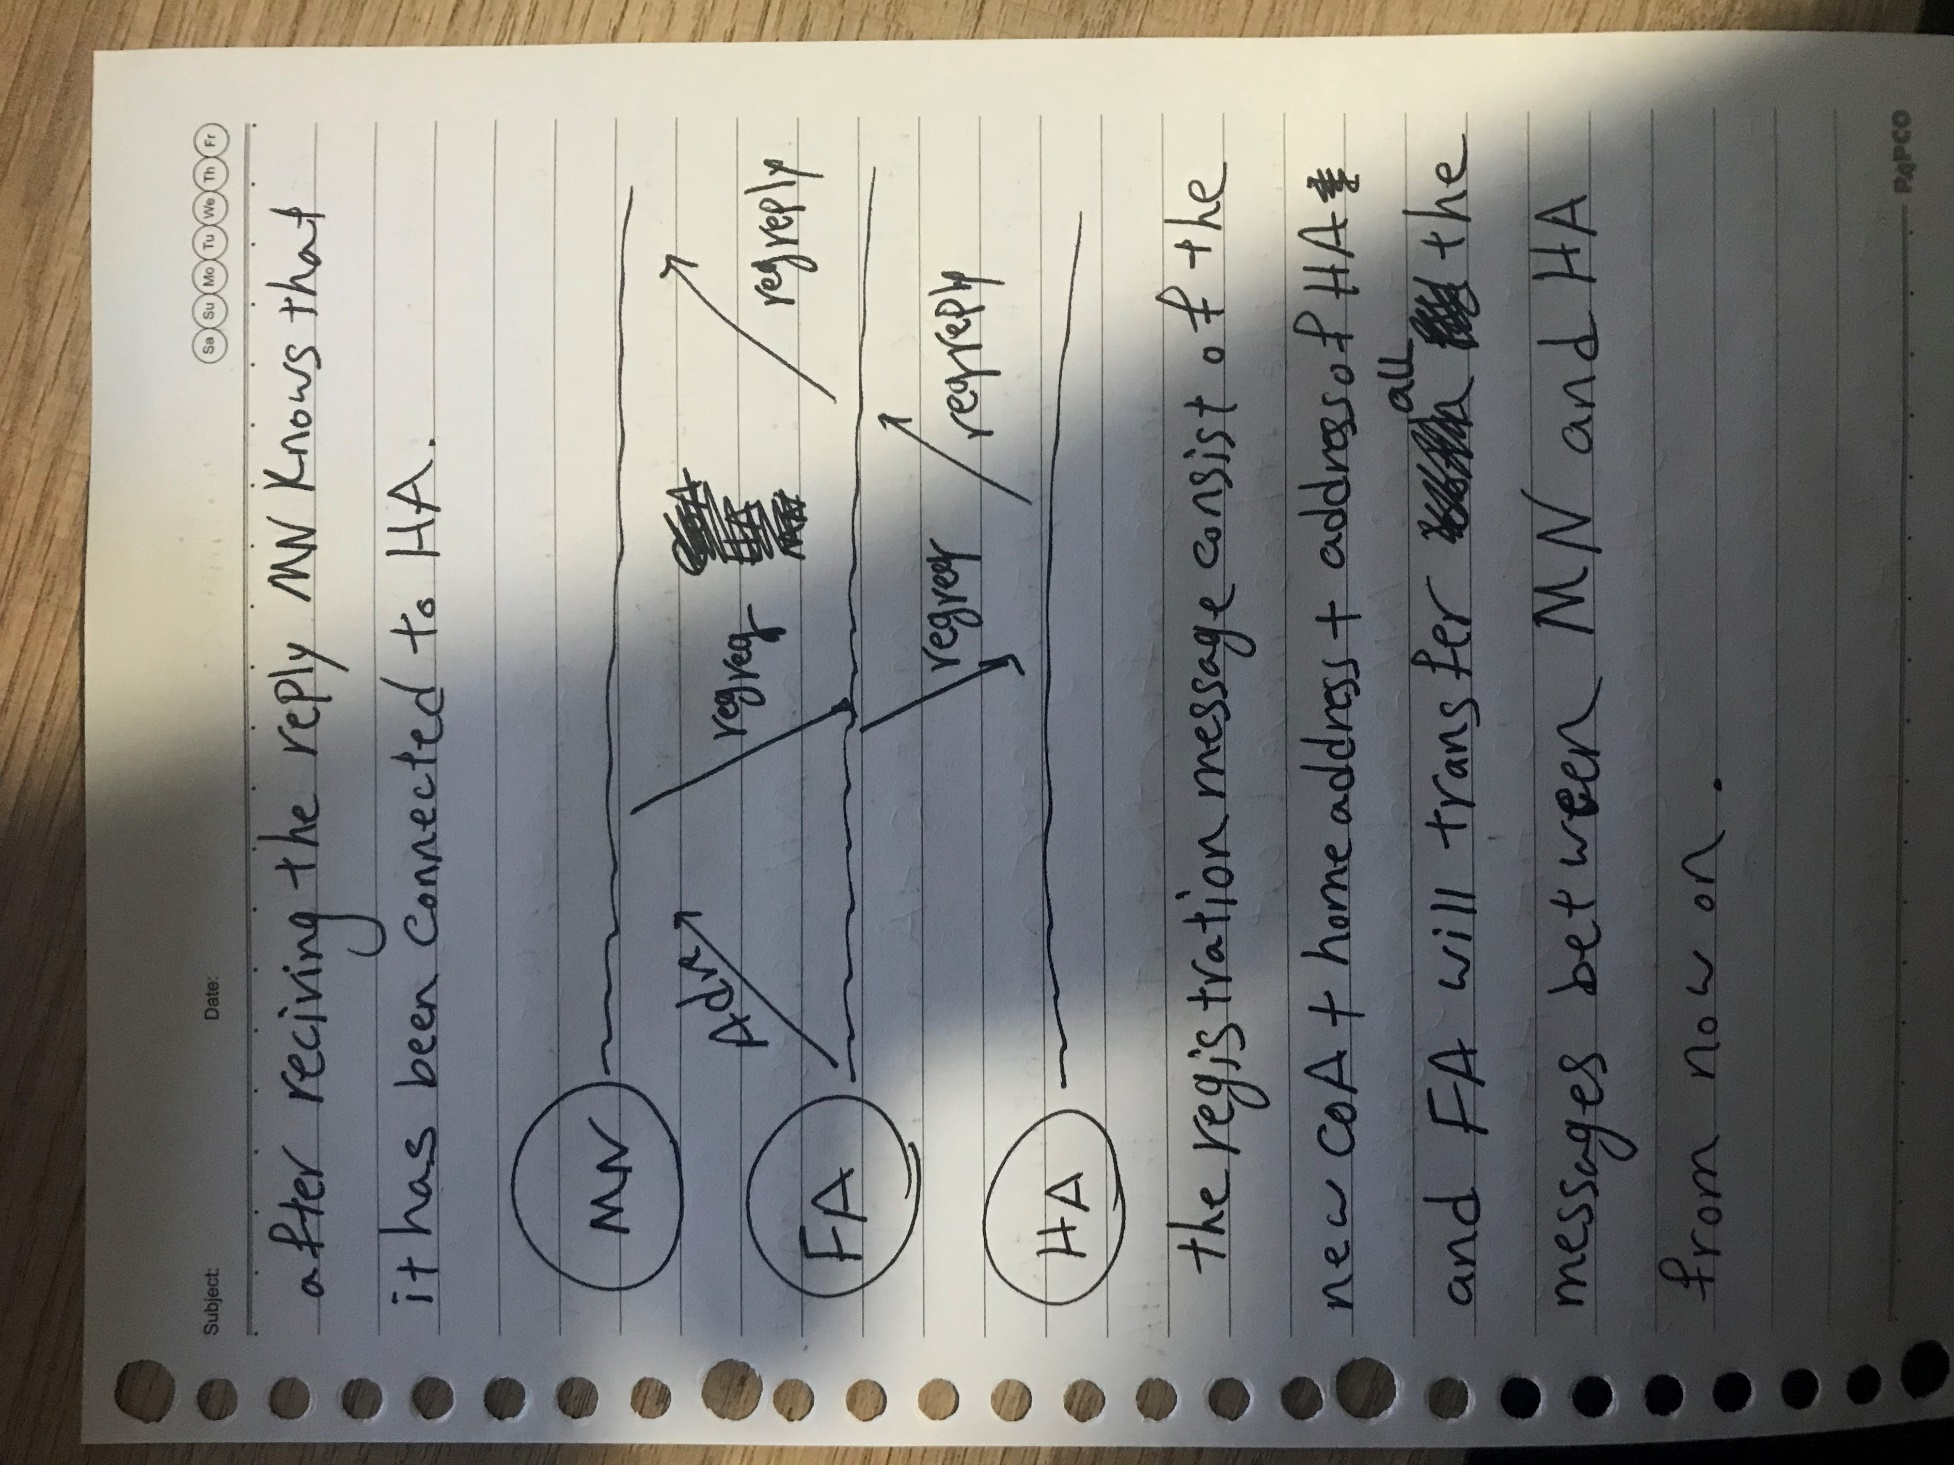 Subject: Date: Sa Su Mo Tu We Th Fr
after reciving the reply MN Knows that
it has been connected to HA.
MN
Adv regreq regreply
FA
regreq regreply
HA
the registration message consist of the
new CoA + home address + address of HA
and FA will transfer all the
messages between MN and HA
from now on.
PAPCO